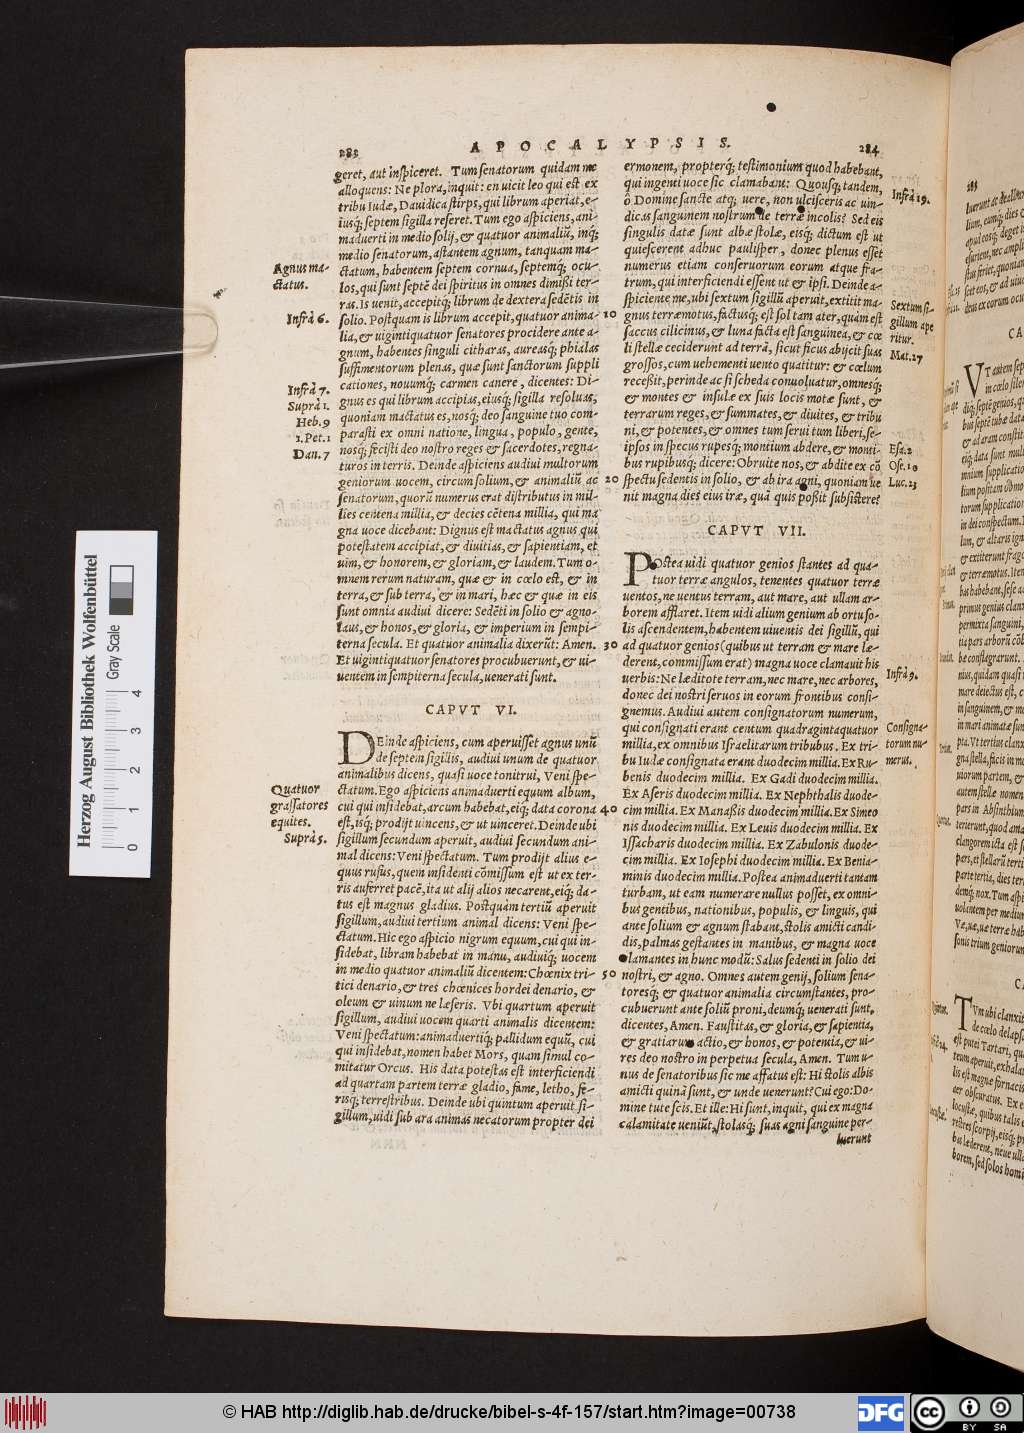 283
APOCALYPSIS.
284
geret, aut inspiceret. Tum senatorum quidam me
alloquens: Ne plora, inquit: en uicit leo qui est ex
tribu Iudæ, Dauidica stirps, qui librum aperiat, e-
iusq; septem sigilla reseret. Tum ego aspiciens, ani
maduerti in medio solij, & quatuor animaliũ, inq;
medio senatorum, astantem agnum, tanquam ma-
Agnus ma-
ctatus.
ctatum, habentem septem cornua, septemq; ocu-
los, qui sunt septẽ dei spiritus in omnes dimißi ter-
ras. Is uenit, accepitq; librum de dextera sedẽtis in
Infrà 6.
solio. Postquam is librum accepit, quatuor anima-
10
lia, & uigintiquatuor senatores procidere ante a-
gnum, habentes singuli citharas, aureasq; phialas
suffimentorum plenas, quæ sunt sanctorum suppli
Infrà 7.
cationes, nouumq; carmen canere, dicentes: Di-
Suprà 1.
gnus es qui librum accipias, eiusq; sigilla resoluas,
Heb. 9
quoniam mactatus es, nosq; deo sanguine tuo com-
1. Pet. 1
parasti ex omni natione, lingua, populo, gente,
Dan. 7
nosq; fecisti deo nostro reges & sacerdotes, regna-
turos in terris. Deinde aspiciens audiui multorum
geniorum uocem, circum solium, & animaliũ, ac
20
senatorum, quorũ numerus erat distributus in mil-
lies centena millia, & decies cẽtena millia, qui ma
gna uoce dicebant: Dignus est mactatus agnus qui
potestatem accipiat, & diuitias, & sapientiam, et
uim, & honorem, & gloriam, & laudem. Tum o-
mnem rerum naturam, quæ & in cœlo est, & in
terra, & sub terra, & in mari, hæc & quæ in eis
sunt omnia audiui dicere: Sedẽti in solio & agno-
laus, & honos, & gloria, & imperium in sempi-
terna secula. Et quatuor animalia dixerũt: Amen.
30
Et uigintiquatuor senatores procubuerunt, & ui-
uentem in sempiterna secula, uenerati sunt.
CAPVT VI.
DEinde aspiciens, cum aperuisset agnus unũ
de septem sigillis, audiui unum de quatuor
animalibus dicens, quasi uoce tonitrui, Veni spe-
Quatuor
grassatores
equites.
ctatum. Ego aspiciens animaduerti equum album,
cui qui insidebat, arcum habebat, eiq; data corona
40
est, isq; prodijt uincens, & ut uinceret. Deinde ubi
Suprà 5.
sigillum secundum aperuit, audiui secundum ani-
mal dicens: Veni spectatum. Tum prodijt alius e-
quus rufus, quem insidenti cõmissum est ut ex ter-
ris auferret pacẽ, ita ut alij alios necarent, eiq; da-
tus est magnus gladius. Postquàm tertiũ aperuit
sigillum, audiui tertium animal dicens: Veni spe-
ctatum. Hic ego aspicio nigrum equum, cui qui in-
sidebat, libram habebat in manu, audiuiq; uocem
in medio quatuor animaliũ dicentem: Chœnix tri-
50
tici denario, & tres chœnices hordei denario, &
oleum & uinum ne læseris. Vbi quartum aperuit
sigillum, audiui uocem quarti animalis dicentem:
Veni spectatum: animaduertiq; pallidum equũ, cui
qui insidebat, nomen habet Mors, quam simul co-
mitatur Orcus. His data potestas est interficiendi
ad quartam partem terræ gladio, fame, letho, fe-
risq; terrestribus. Deinde ubi quintum aperuit si-
gillum, uidi sub ara animas necatorum propter dei
ermonem, propterq; testimonium quod habebant,
qui ingenti uoce sic clamabant: Quousq; tandem,
Infrà 19.
ô Domine sancte atq; uere, non ulcisceris ac uin-
dicas sanguinem nostrum de terræ incolis? Sed eis
singulis datæ sunt albæ stolæ, eisq; dictum est ut
quiescerent adhuc paulisper, donec plenus esset
numerus etiam conseruorum eorum atque fra-
trum, qui interficiendi essent ut & ipsi. Deinde a-
spiciente me, ubi sextum sigillũ aperuit, extitit ma
Sextum si-
gillum ape
ritur.
Mat. 27
gnus terræmotus, factusq; est sol tam ater, quàm est
saccus cilicinus, & luna facta est sanguinea, & cœ
li stellæ ceciderunt ad terrã, sicut ficus abijcit suas
grossos, cum uehementi uento quatitur: & cœlum
recessit, perinde ac si scheda conuoluatur, omnesq;
& montes & insulæ ex suis locis motæ sunt, &
terrarum reges, & summates, & diuites, & tribu
ni, & potentes, & omnes tum serui tum liberi, se-
Esa. 2
ipsos in specus rupesq; montium abdere, & monti-
Ose. 10
bus rupibusq; dicere: Obruite nos, & abdite ex cõ
Luc. 23
spectu sedentis in solio, & ab ira agni, quoniam ue
nit magna dies eius iræ, quã quis possit subsistere?
CAPVT VII.
POstea uidi quatuor genios stantes ad qua-
tuor terræ angulos, tenentes quatuor terræ
uentos, ne uentus terram, aut mare, aut ullam ar-
borem afflaret. Item uidi alium genium ab ortu so-
lis ascendentem, habentem uiuentis dei sigillũ, qui
ad quatuor genios (quibus ut terram & mare læ-
derent, commissum erat) magna uoce clamauit his
Infrà 9.
uerbis: Ne læditote terram, nec mare, nec arbores,
donec dei nostri seruos in eorum frontibus consi-
gnemus. Audiui autem consignatorum numerum,
Consigna-
torum nu-
merus.
qui consignati erant centum quadragintaquatuor
millia, ex omnibus Israelitarum tribubus. Ex tri-
bu Iudæ consignata erant duodecim millia. Ex Ru-
benis duodecim millia. Ex Gadi duodecim millia.
Ex Aseris duodecim millia. Ex Nephthalis duode-
cim millia. Ex Manaßis duodecim millia. Ex Simeo
nis duodecim millia. Ex Leuis duodecim millia. Ex
Issacharis duodecim millia. Ex Zabulonis duode-
cim millia. Ex Iosephi duodecim millia. Ex Benia-
minis duodecim millia. Postea animaduerti tantam
turbam, ut eam numerare nullus posset, ex omni-
bus gentibus, nationibus, populis, & linguis, qui
ante solium & agnum stabant, stolis amicti candi-
dis, palmas gestantes in manibus, & magna uoce
clamantes in hunc modũ: Salus sedenti in solio dei
nostri, & agno. Omnes autem genij, solium sena-
toresq; & quatuor animalia circumstantes, pro-
cubuerunt ante soliũ proni, deumq; uenerati sunt,
dicentes, Amen. Faustitas, & gloria, & sapientia,
& gratiarum actio, & honos, & potentia, & ui-
res deo nostro in perpetua secula, Amen. Tum u-
nus de senatoribus sic me affatus est: Hi stolis albis
amicti quinã sunt, & unde uenerunt? Cui ego: Do-
mine tu te scis. Et ille: Hi sunt, inquit, qui ex magna
calamitate ueniũt, stolasq; suas agni sanguine per-
luerunt
Herzog August Bibliothek Wolfenbüttel
Gray Scale
0 1 2 3 4
© HAB http://diglib.hab.de/drucke/bibel-s-4f-157/start.htm?image=00738
DFG
cc
BY SA